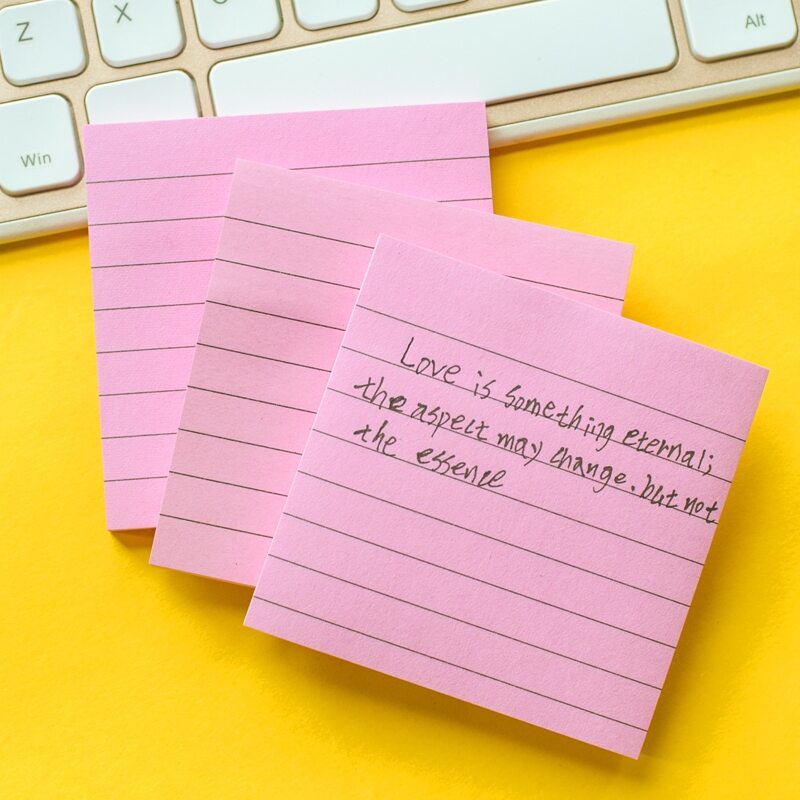 Z X
Alt
Win
Love is something eternal;
the aspect may change. but not
the essence